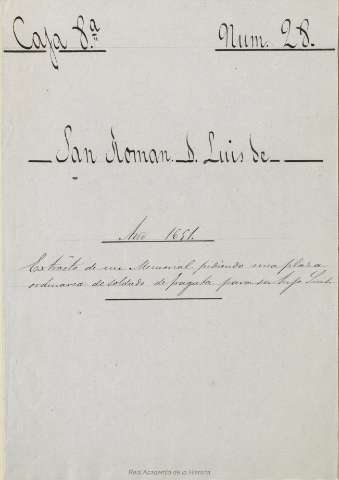 Caja 8.ª Num. 28.
San Roman. D. Luis de
Año 1651.
Extracto de un Memorial pidiendo una plaza
ordinaria de soldado de fragata para su hijo Luis.
Real Academia de la Historia